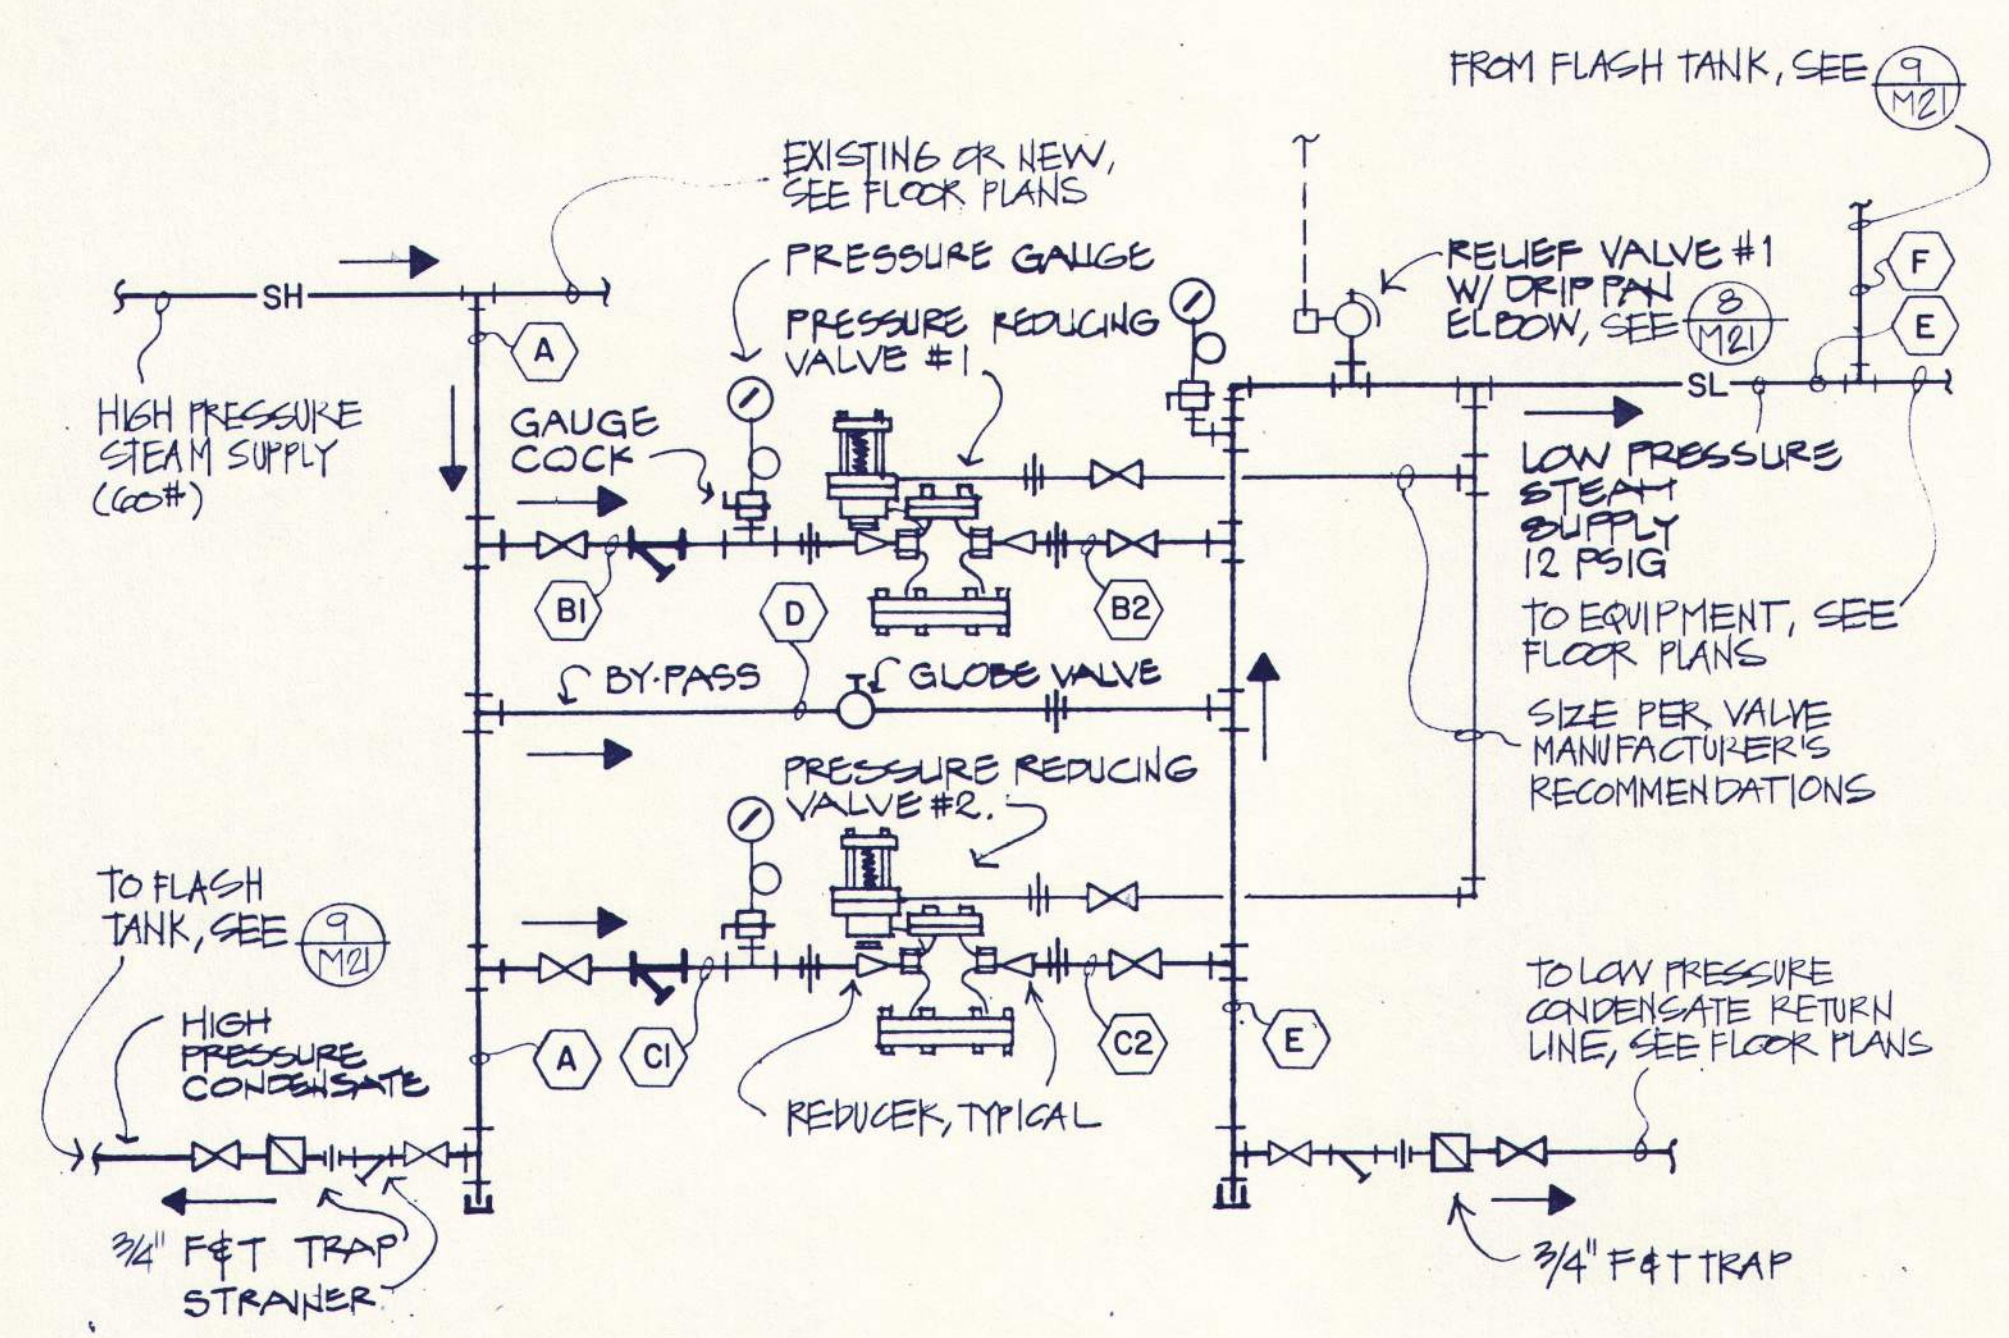 FROM FLASH TANK, SEE 9
M21
EXISTING OR NEW,
SEE FLOOR PLANS
PRESSURE GAUGE
PRESSURE REDUCING
VALVE #1
RELIEF VALVE #1
W/ DRIP PAN
ELBOW, SEE 8
M21
F
E
SH
A
SL
HIGH PRESSURE
STEAM SUPPLY
(60#)
GAUGE
COCK
LOW PRESSURE
STEAM
SUPPLY
12 PSIG
B1
D
B2
TO EQUIPMENT, SEE
FLOOR PLANS
BY-PASS
GLOBE VALVE
SIZE PER VALVE
MANUFACTURER'S
RECOMMENDATIONS
PRESSURE REDUCING
VALVE #2.
TO FLASH
TANK, SEE 9
M21
HIGH
PRESSURE
CONDENSATE
A
C1
C2
E
TO LOW PRESSURE
CONDENSATE RETURN
LINE, SEE FLOOR PLANS
REDUCER, TYPICAL
3/4" F&T TRAP
STRAINER
3/4" F&T TRAP